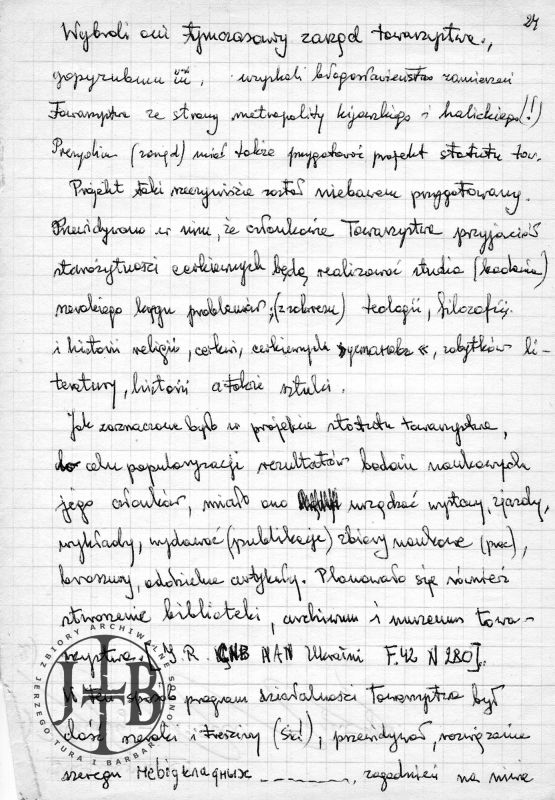 24
Wybrali oni tymczasowy zarząd towarzystwa.,
uzyskali błogosławieństwo zamierzeń
Towarzystwa ze strony metropolity kijowskiego i halickiego(!)
Prezydium (zarząd) miał także przygotować projekt statutu tow.
Projekt taki rzeczywiście został niebawem przygotowany.
Przewidywano w nim, że członkowie Towarzystwa przyjaciół
starożytności cerkiewnych będą realizować studia (badania)
szerokiego kręgu problemów, (z zakresu) teologii, filozofii,
i historii religii, cerkwi, cerkiewnych „установ“, zabytków li-
teratury, historii a także sztuki.
Jak zaznaczone było w projekcie statutu towarzystwa,
do celu popularyzacji rezultatów badań naukowych
jego członków, miało ono urządzać wystawy, zjazdy,
wykłady, wydawać (publikacje) zbiory naukowe (prac),
broszury, oddzielne artykuły. Planowało się również
stworzenie biblioteki, archiwum i muzeum towa-
rzystwa. [I.R. CNB NAN Ukraini F.42 N 280].
W ten sposób program działalności Towarzystwa był
dość szeroki i treściwy (ści), przewidywał, rozwiązanie
szeregu невідкладних ________, zagadnień na miarę
ZBIORY ARCHIWALNE
JERZEGO TURA I BARBARY TONDOS
J B